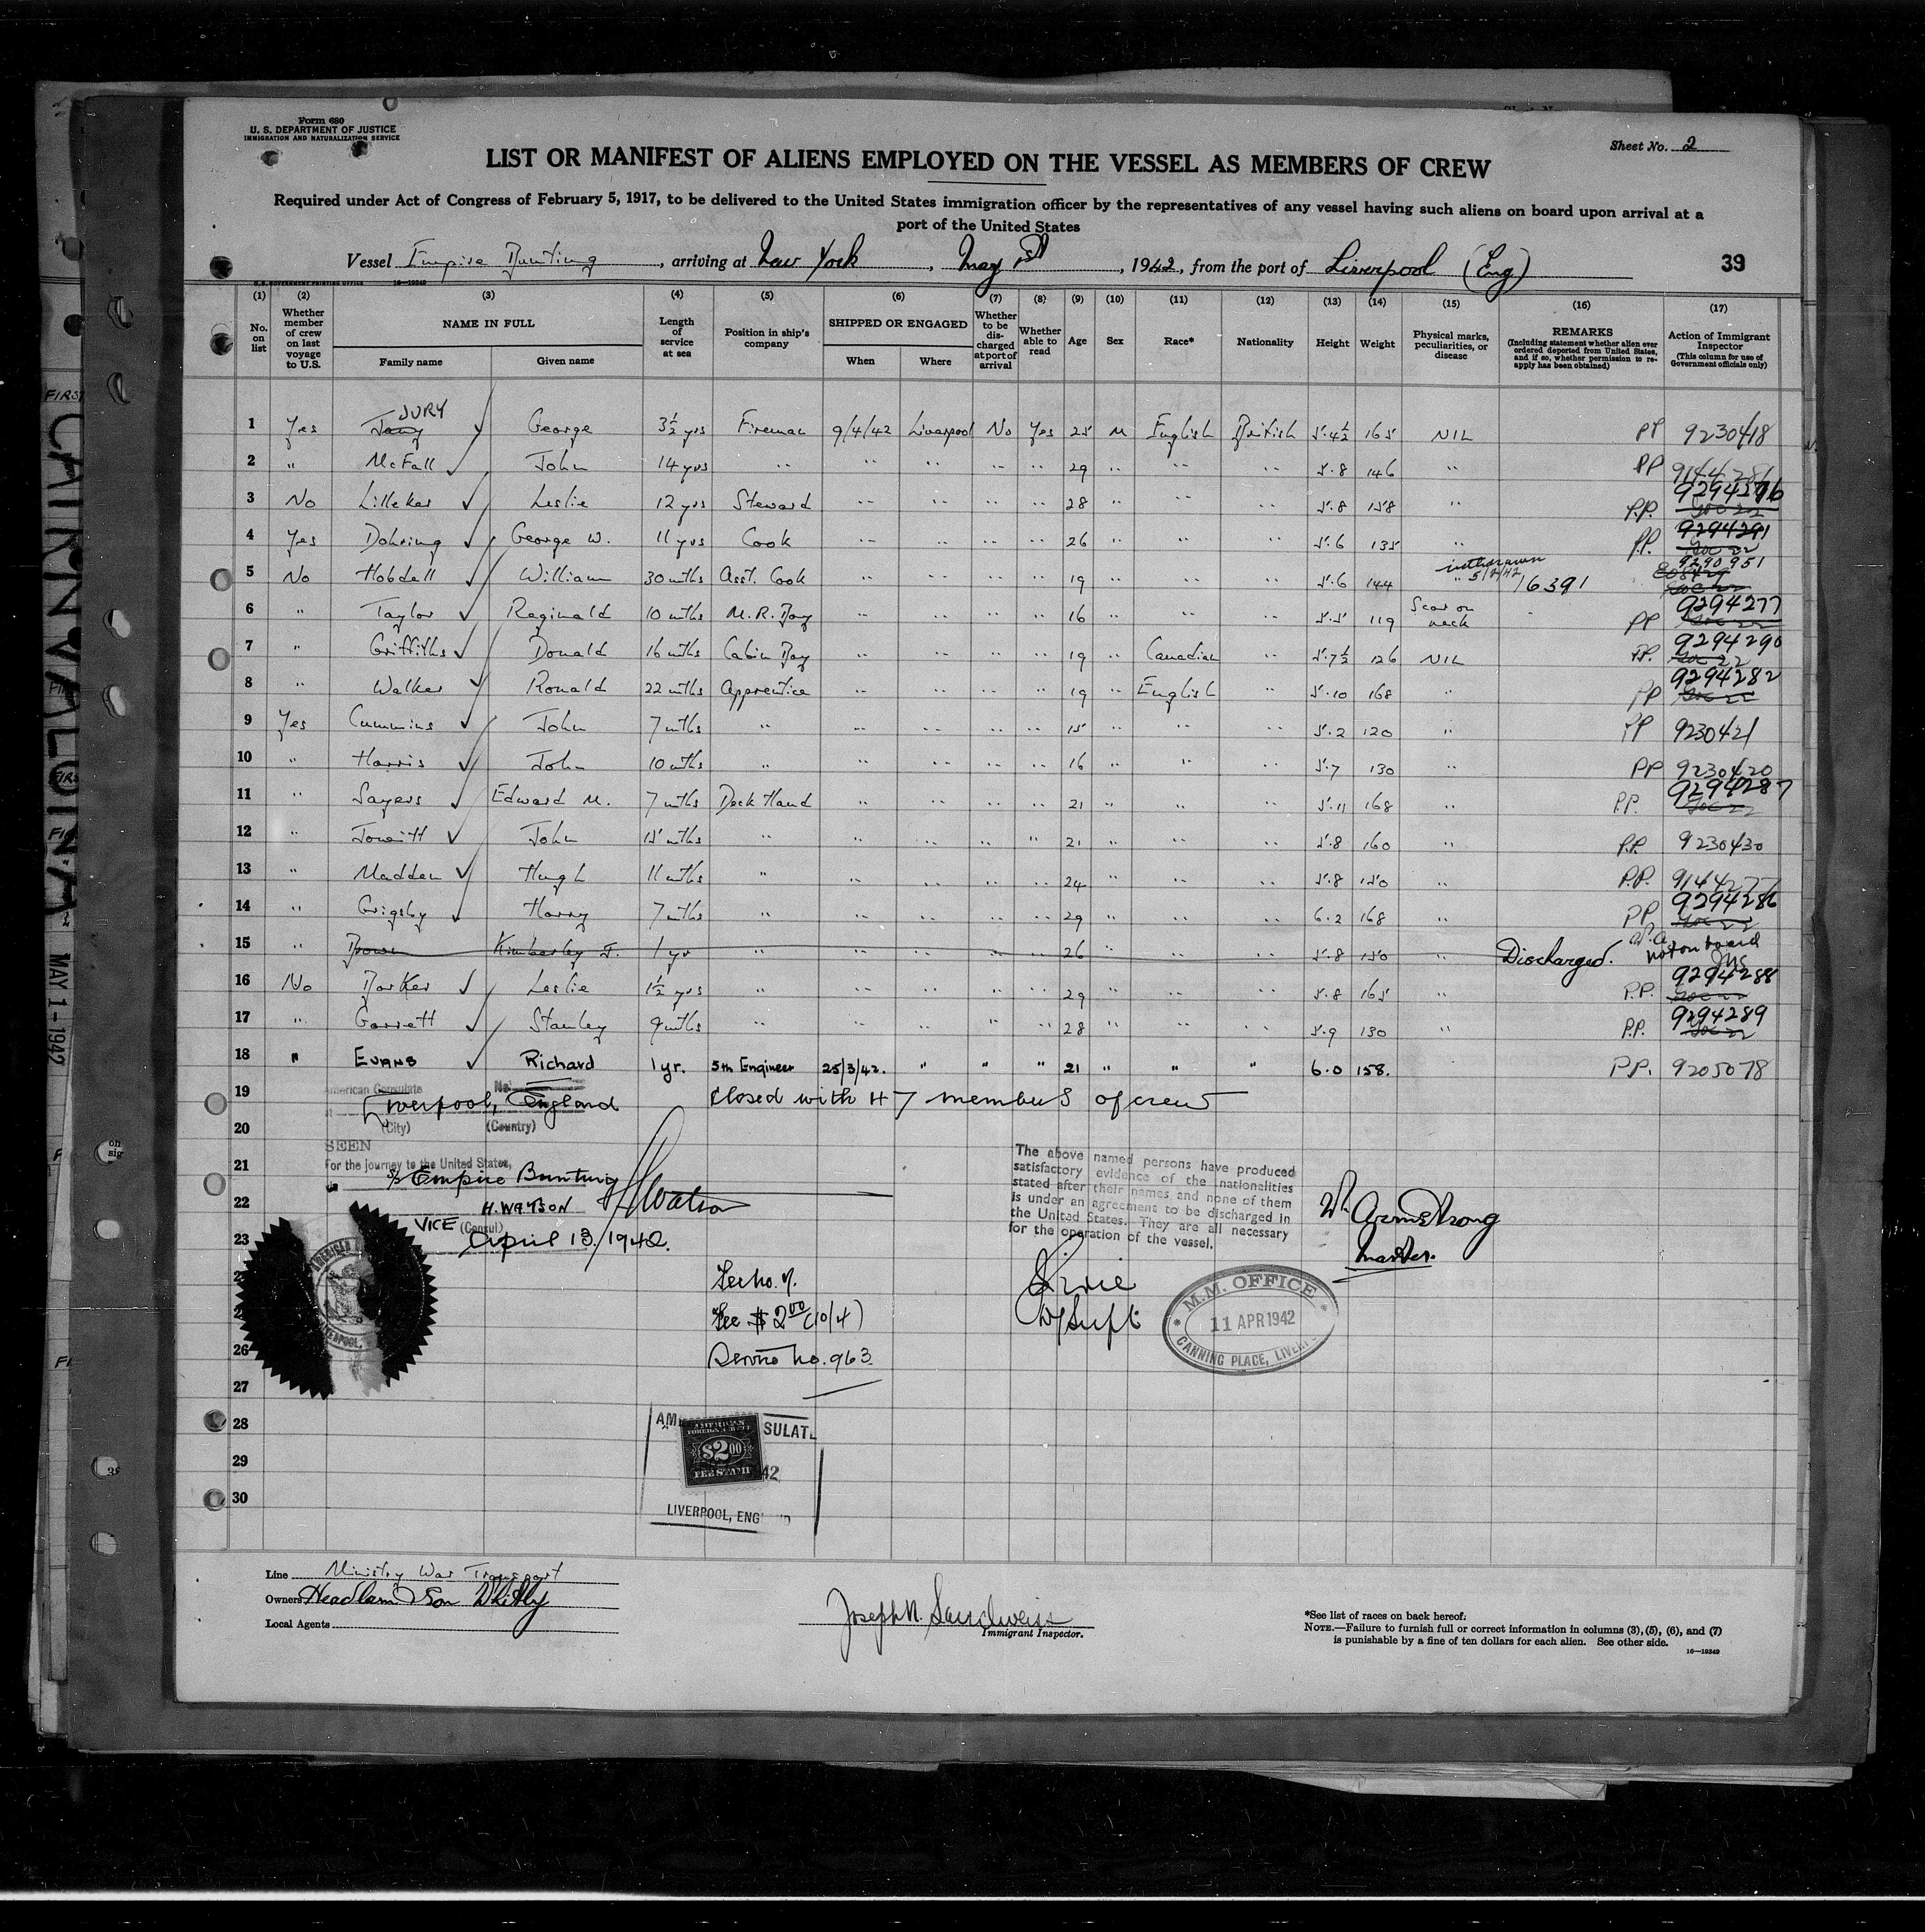 Form 680
U. S. DEPARTMENT OF JUSTICE
IMMIGRATION AND NATURALIZATION SERVICE
Sheet No. 2
LIST OR MANIFEST OF ALIENS EMPLOYED ON THE VESSEL AS MEMBERS OF CREW
Required under Act of Congress of February 5, 1917, to be delivered to the United States immigration officer by the representatives of any vessel having such aliens on board upon arrival at a
port of the United States
Vessel Empire Bunting, arriving at New York, May 1st, 1942, from the port of Liverpool (Eng)
39
U. S. GOVERNMENT PRINTING OFFICE 16—19349
(1) (2) (3) (4) (5) (6) (7) (8) (9) (10) (11) (12) (13) (14) (15) (16) (17)
No. on list
Whether member of crew on last voyage to U.S.
NAME IN FULL
Family name
Given name
Length of service at sea
Position in ship's company
SHIPPED OR ENGAGED
When
Where
Whether to be discharged at port of arrival
Whether able to read
Age
Sex
Race*
Nationality
Height
Weight
Physical marks, peculiarities, or disease
REMARKS
(Including statement whether alien ever ordered deported from United States, and if so, whether permission to reapply has been obtained)
Action of Immigrant Inspector
(This column for use of Government officials only)
JURY
1 Yes George 3½ yrs Fireman 9/4/42 Liverpool No Yes 25 M English British 5.4½ 165 NIL PP 9230418
2 " McFall John 14 yrs " " " " " 29 " " " 5.8 146 " PP 9144286
3 No Lilleker Leslie 12 yrs Steward " " " " 28 " " " 5.8 158 " P.P. 9294276
4 Yes Dohring George W. 11 yrs Cook " " " " 26 " " " 5.6 135 " P.P. 9294291
5 No Hobdell William 30 mths Asst. Cook " " " " 19 " " " 5.6 144 " withdrawn 5/2/42 16391 9290951
6 " Taylor Reginald 10 mths M.R. Boy " " " " 16 " " " 5.5 119 Scar on neck PP 9294277
7 " Griffiths Donald 16 mths Cabin Boy " " " " 19 " Canadian " 5.7½ 126 NIL PP. 9294290
8 " Walker Ronald 22 mths Apprentice " " " " 19 " English " 5.10 168 " PP 9294282
9 Yes Cummins John 7 mths " " " " " 15 " " " 5.2 120 " PP 9230421
10 " Harris John 10 mths " " " " " 16 " " " 5.7 130 " PP 9230420
11 " Sayers Edward M. 7 mths Deck Hand " " " " 21 " " " 5.11 168 " P.P. 9294287
12 " Jowitt John 15 mths " " " " " 21 " " " 5.8 160 " P.P. 9230430
13 " Madden Hugh 11 mths " " " " " 24 " " " 5.8 150 " P.P. 9144277
14 " Grigsby Harry 7 mths " " " " " 29 " " " 6.2 168 " P.P. 9294286
15 " Bown Kimberley J. 1 yr " " " " " 26 " " " 5.8 150 " Discharged. not on board
16 No Barker Leslie 1½ yrs " " " " " 29 " " " 5.8 165 " P.P. 9294288
17 " Garrett Stanley 9 mths " " " " " 28 " " " 5.9 130 " P.P. 9294289
18 " EVANS Richard 1 yr. 5th Engineer 25/3/42. " " " 21 " " " 6.0 158. P.P. 9205078
American Consulate No.
19 Liverpool, England Closed with 47 members of crew
(City) (Country)
20
SEEN
21 For the journey to the United States,
S/S Empire Bunting
22 H. WATSON HWatson
VICE (Consul)
23 April 13, 1942.
The above named persons have produced
satisfactory evidence of the nationalities
stated after their names and none of them
is under an agreement to be discharged in
the United States. They are all necessary
for the operation of the vessel.
Wm Armstrong
Master.
Fee $2.00 (10/4)
Service No. 963
D/Supt.
M.M. OFFICE
11 APR 1942
CANNING PLACE, LIVERP
26
27
28
29
30
AMERICAN
FOREIGN SERVICE
$2.00
FEE STAMP
AM SULAT
42
LIVERPOOL, ENG
Line Ministry War Transport
Owners Headlam & Son Whitby
Local Agents
Joseph N. Sandweiss
Immigrant Inspector.
*See list of races on back hereof.
NOTE.—Failure to furnish full or correct information in columns (3), (5), (6), and (7)
is punishable by a fine of ten dollars for each alien. See other side.
16—19349
CAIRNVALONA
MAY 1 - 1942